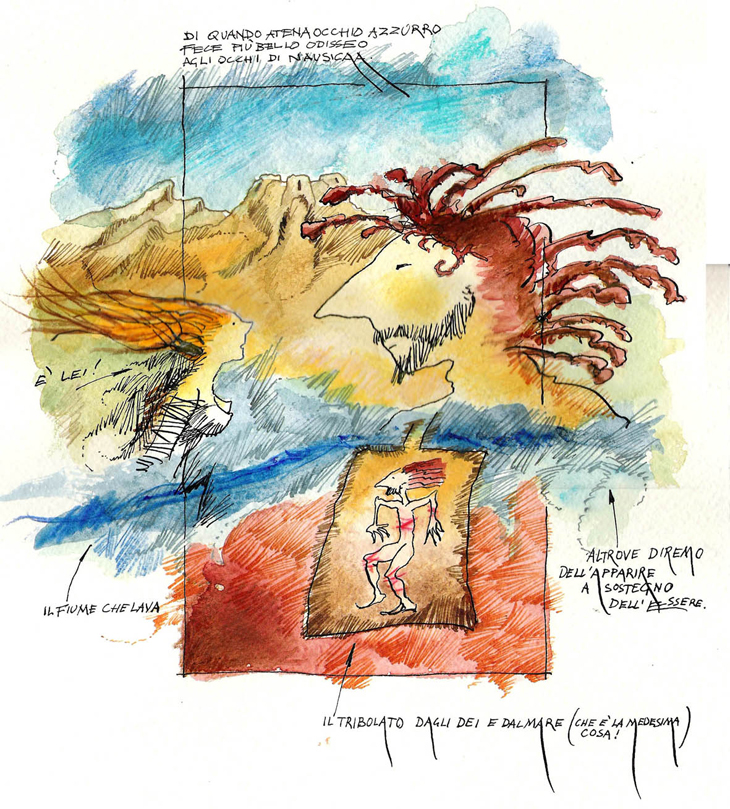 DI QUANDO ATENA OCCHIO AZZURRO
FECE PIÙ BELLO ODISSEO
AGLI OCCHI DI NAUSICAA
È LEI!
IL FIUME CHE LAVA
ALTROVE DIREMO
DELL'APPARIRE
A SOSTEGNO
DELL'ESSERE.
IL TRIBOLATO DAGLI DEI E DAL MARE (CHE E' LA MEDESIMA
COSA!)